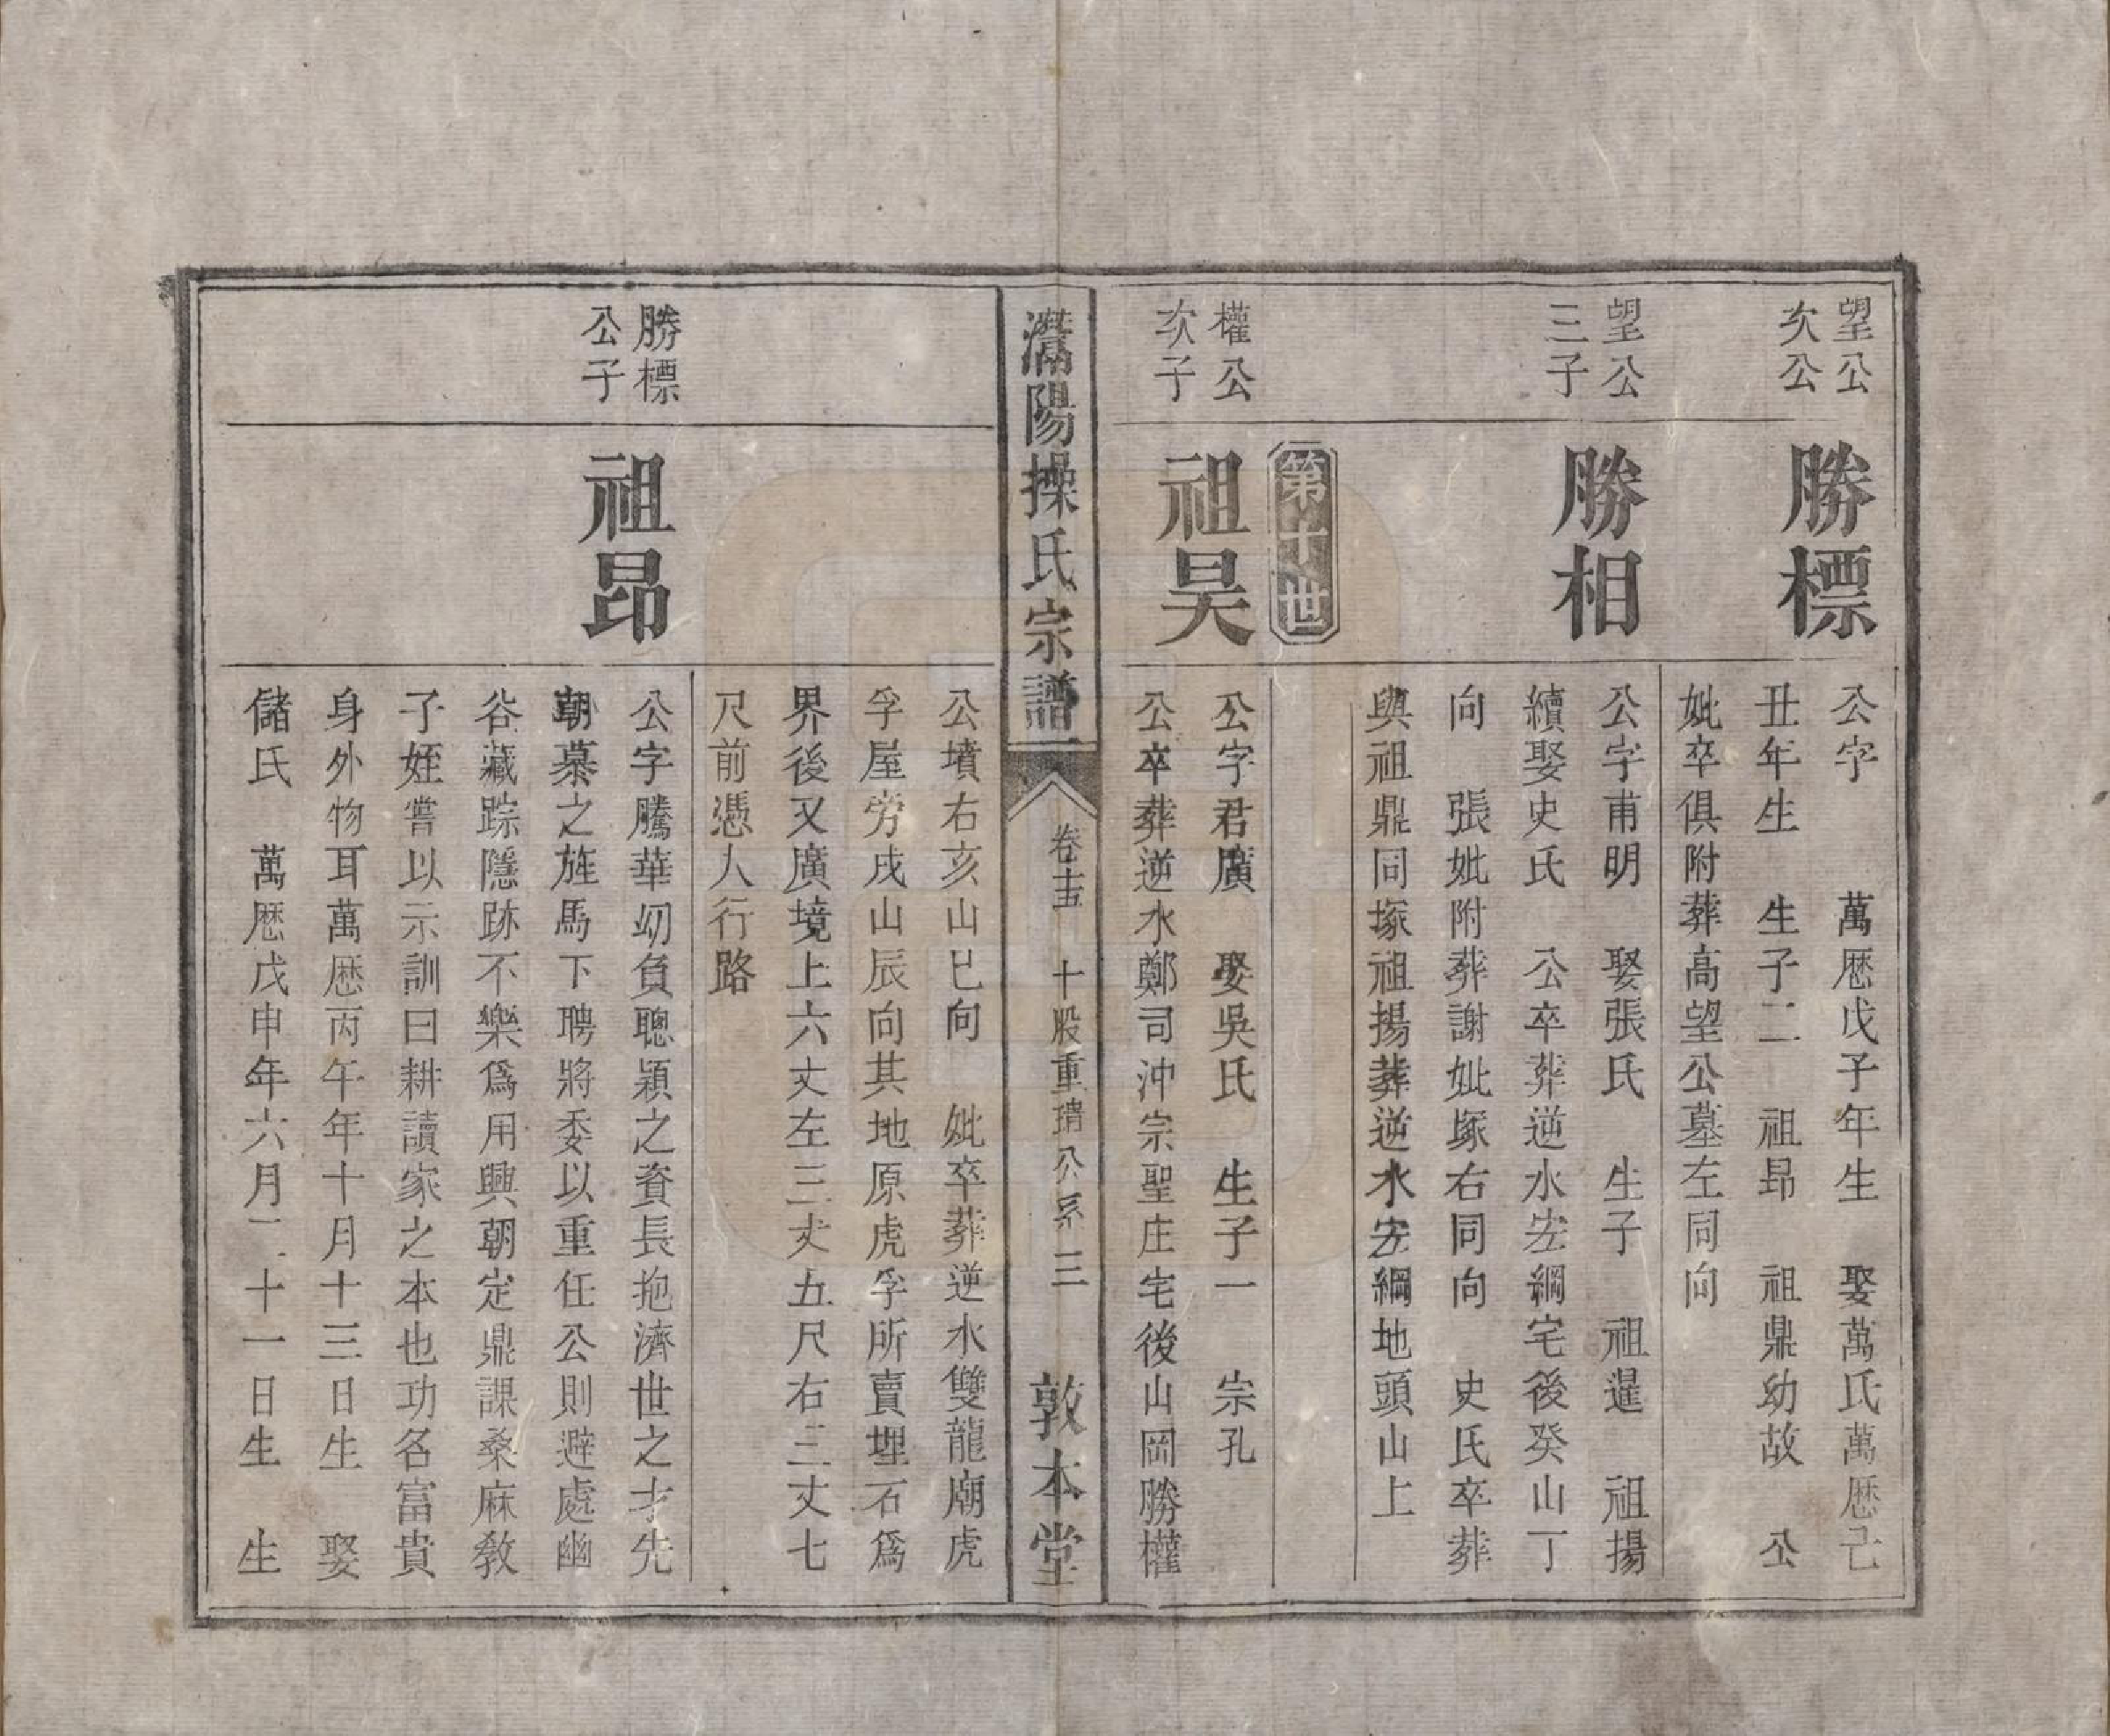 望公
次公
勝標
公字　萬厯戊子年生　娶萬氏萬厯己
丑年生　生子二　祖昂　祖鼎幼故　公
妣卒俱附葬高望公墓左同向
望公
三子
勝相
公字甫明　娶張氏　生子　祖暹　祖揚
續娶史氏　公卒葬逆水宏綱宅後癸山丁
向　張妣附葬謝妣塚右同向　史氏卒葬
與祖鼎同塚祖揚葬逆水宏綱地頭山上
第十世
權公
次子
祖昊
公字君廣　娶吳氏　生子一　宗孔
公卒葬逆水鄭司沖宗聖庄宅後山岡勝權
灊陽操氏宗譜
卷十五　十股重琇公系　三
敦本堂
公墳右亥山巳向　妣卒葬逆水雙龍廟虎
孚屋旁戌山辰向其地原虎孚所賣埋石爲
界後又廣境上六丈左三丈五尺右二丈七
尺前憑人行路
勝標
公子
祖昂
公字騰華㓜負聰穎之資長抱濟世之才先
朝慕之旌馬下聘將委以重任公則避處幽
谷藏踪隱跡不樂爲用興朝定鼎課桑麻教
子姪嘗以示訓曰耕讀家之本也功名富貴
身外物耳萬厯丙午年十月十三日生　娶
儲氏　萬厯戊申年六月二十一日生　生